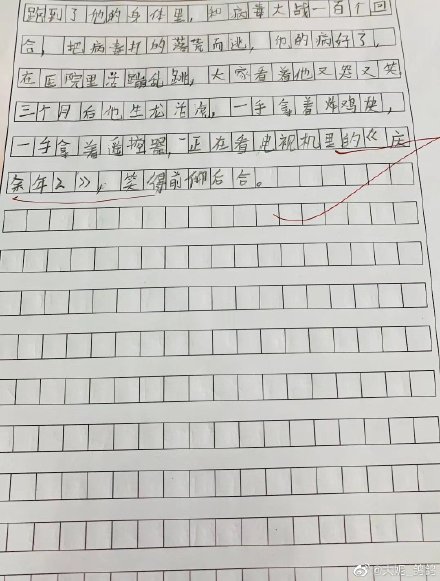 跑到了他的身体里，和病毒大战一百个回
合，把病毒打的落荒而逃，他的病好了，
在医院里活蹦乱跳，大家看着他又哭又笑
三个月后他生龙活虎，一手拿着炸鸡块，
一手拿着遥控器，正在看电视机里的《庆
余年2》，笑得前仰后合。